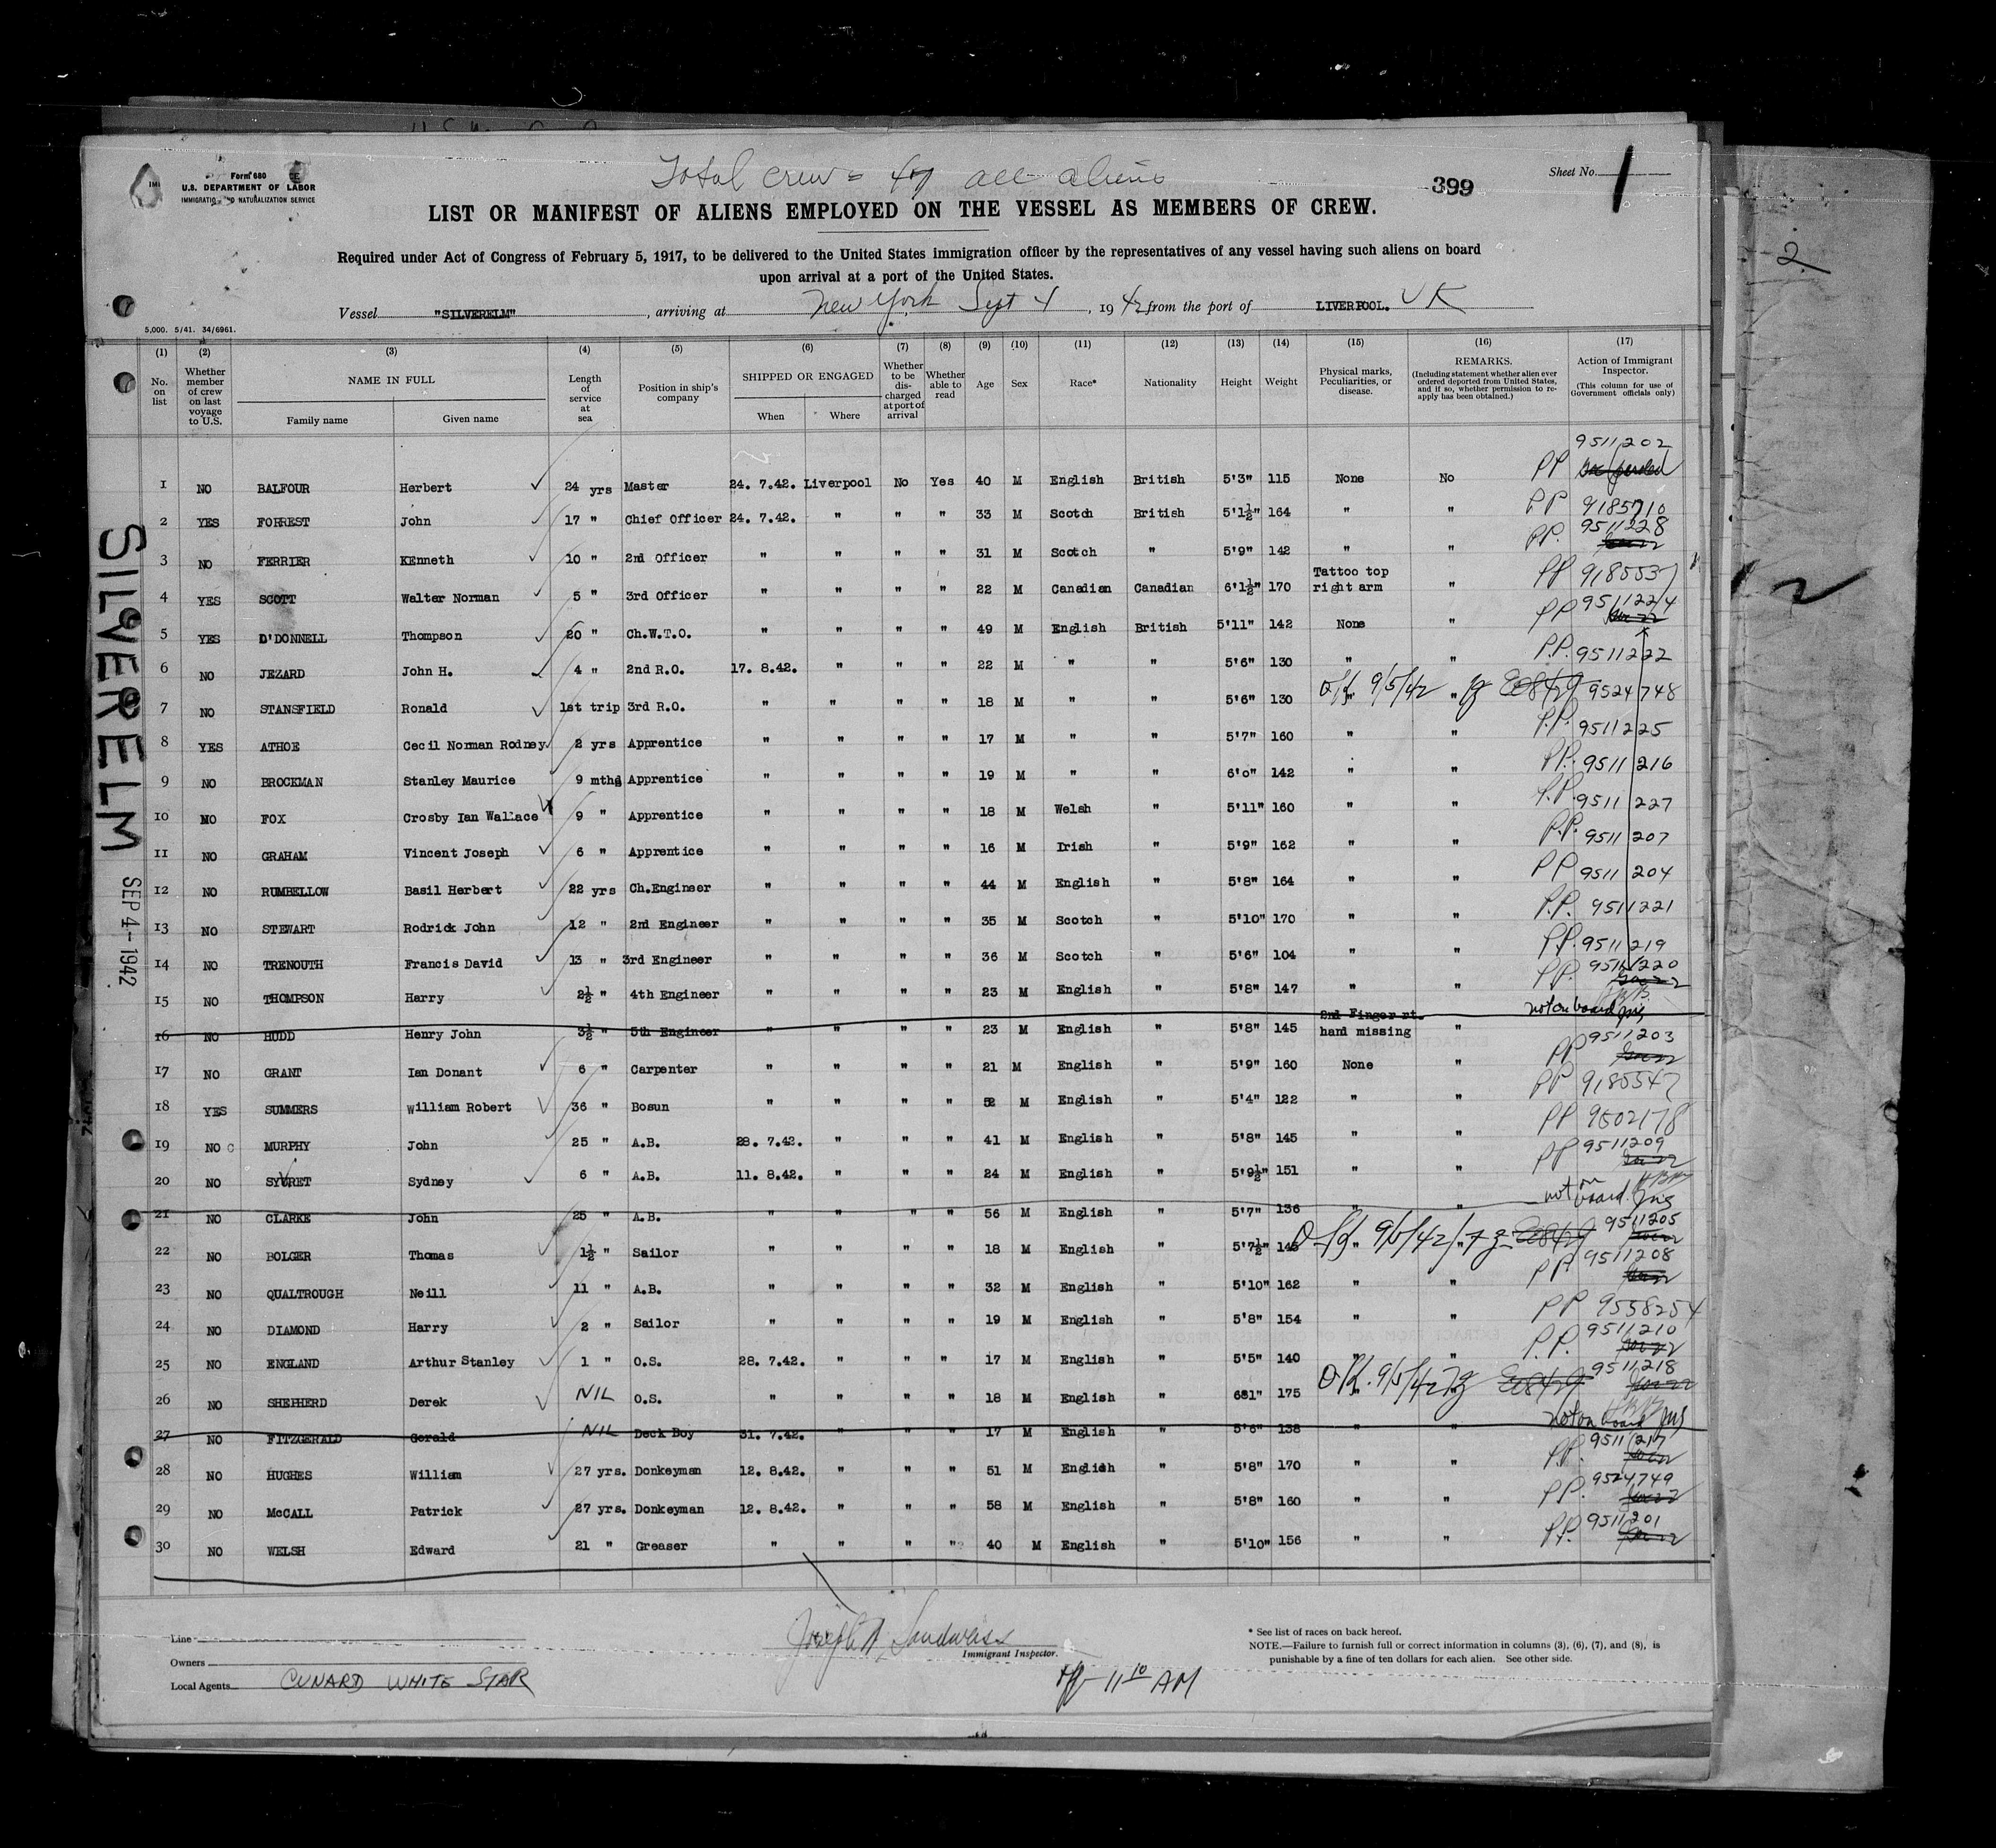 Total crew = 47 all aliens
Form 680
U.S. DEPARTMENT OF LABOR
IMMIGRATION AND NATURALIZATION SERVICE
399
Sheet No. 1
LIST OR MANIFEST OF ALIENS EMPLOYED ON THE VESSEL AS MEMBERS OF CREW.
Required under Act of Congress of February 5, 1917, to be delivered to the United States immigration officer by the representatives of any vessel having such aliens on board
upon arrival at a port of the United States.
Vessel "SILVERELM", arriving at New York Sept 4, 1942 from the port of LIVERPOOL. UK
5,000. 5/41. 34/6961.
(1) (2) (3) (4) (5) (6) (7) (8) (9) (10) (11) (12) (13) (14) (15) (16) (17)
No. on list
Whether member of crew on last voyage to U.S.
NAME IN FULL
Family name
Given name
Length of service at sea
Position in ship's company
SHIPPED OR ENGAGED
When
Where
Whether to be discharged at port of arrival
Whether able to read
Age
Sex
Race*
Nationality
Height
Weight
Physical marks, Peculiarities, or disease.
REMARKS.
(Including statement whether alien ever ordered deported from United States, and if so, whether permission to re-apply has been obtained.)
Action of Immigrant Inspector.
(This column for use of Government officials only)
1 NO BALFOUR Herbert 24 yrs Master 24. 7.42. Liverpool No Yes 40 M English British 5'3" 115 None No PP 9511202
2 YES FORREST John 17 " Chief Officer 24. 7.42. " " " 33 M Scotch British 5'1½" 164 " " PP 9185710
3 NO FERRIER KEnneth 10 " 2nd Officer " " " " 31 M Scotch " 5'9" 142 " " PP. 9511228
4 YES SCOTT Walter Norman 5 " 3rd Officer " " " " 22 M Canadian Canadian 6'1½" 170 Tattoo top right arm " PP 9185537
5 YES D'DONNELL Thompson 20 " Ch.W.T.O. " " " " 49 M English British 5'11" 142 None " PP 9511224
6 NO JEZARD John H. 4 " 2nd R.O. 17. 8.42. " " " 22 M " " 5'6" 130 " " P.P. 9511222
7 NO STANSFIELD Ronald 1st trip 3rd R.O. " " " " 18 M " " 5'6" 130 " O/K 9/5/42 " 9524748
8 YES ATHOE Cecil Norman Rodney 2 yrs Apprentice " " " " 17 M " " 5'7" 160 " " P.P. 9511225
9 NO BROCKMAN Stanley Maurice 9 mths Apprentice " " " " 19 M " " 6'0" 142 " " PP. 9511216
10 NO FOX Crosby Ian Wallace 9 " Apprentice " " " " 18 M Welsh " 5'11" 160 " " P.P. 9511227
11 NO GRAHAM Vincent Joseph 6 " Apprentice " " " " 16 M Irish " 5'9" 162 " " P.P. 9511207
12 NO RUMBELLOW Basil Herbert 22 yrs Ch.Engineer " " " " 44 M English " 5'8" 164 " " PP 9511204
13 NO STEWART Rodrick John 12 " 2nd Engineer " " " " 35 M Scotch " 5'10" 170 " " P.P. 9511221
14 NO TRENOUTH Francis David 13 " 3rd Engineer " " " " 36 M Scotch " 5'6" 104 " " P.P. 9511219
15 NO THOMPSON Harry 2½ " 4th Engineer " " " " 23 M English " 5'8" 147 " " PP. 9511220
16 NO HUDD Henry John 3½ " 5th Engineer " " " " 23 M English " 5'8" 145 2nd Finger rt. hand missing " not on board
17 NO GRANT Ian Donant 6 " Carpenter " " " " 21 M English " 5'9" 160 None " PP 9511203
18 YES SUMMERS William Robert 36 " Bosun " " " " 52 M English " 5'4" 122 " " PP 9185547
19 NO C MURPHY John 25 " A.B. 28. 7.42. " " " 41 M English " 5'8" 145 " " PP 9502178
20 NO SYVRET Sydney 6 " A.B. 11. 8.42. " " " 24 M English " 5'9½" 151 " " PP 9511209
21 NO CLARKE John 25 " A.B. " " " " 56 M English " 5'7" 136 " " not on board
22 NO BOLGER Thomas 1½ " Sailor " " " " 18 M English " 5'7½" 145 " O/K 9/5/42 " 9511205
23 NO QUALTROUGH Neill 11 " A.B. " " " " 32 M English " 5'10" 162 " " PP 9511208
24 NO DIAMOND Harry 2 " Sailor " " " " 19 M English " 5'8" 154 " " PP 9558254
25 NO ENGLAND Arthur Stanley 1 " O.S. 28. 7.42. " " " 17 M English " 5'5" 140 " " P.P. 9511210
26 NO SHEPHERD Derek NIL O.S. " " " " 18 M English " 681" 175 " O/K. 9/5/42 9511218
27 NO FITZGERALD Gerald NIL Deck Boy 31. 7.42. " " " 17 M English " 5'6" 138 " " not on board
28 NO HUGHES William 27 yrs. Donkeyman 12. 8.42. " " " 51 M English " 5'8" 170 " " PP. 9511217
29 NO McCALL Patrick 27 yrs. Donkeyman 12. 8.42. " " " 58 M English " 5'8" 160 " " P.P. 9524749
30 NO WELSH Edward 21 " Greaser " " " " 40 M English " 5'10" 156 " " P.P. 9511201
SILVERELM
SEP 4-1942
2
Line
Owners
Local Agents CUNARD WHITE STAR
Joseph A. Sandweiss
Immigrant Inspector.
11 10 AM
* See list of races on back hereof.
NOTE.—Failure to furnish full or correct information in columns (3), (6), (7), and (8), is
punishable by a fine of ten dollars for each alien. See other side.